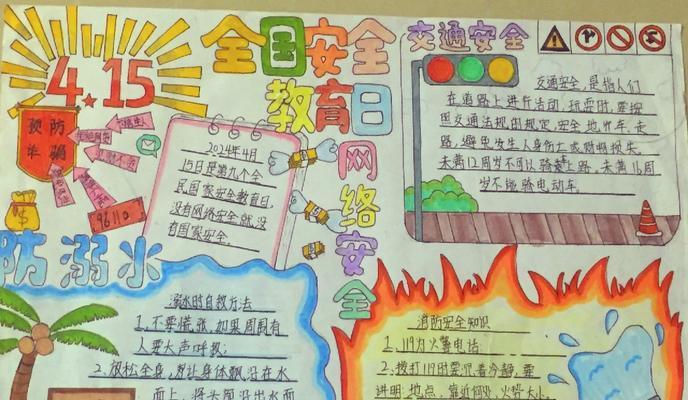 4.15
全国安全
教育日
预防
诈骗
96110
2024年4月
15日是第九个全
民国家安全教育日,
没有网络安全就没
有国家安全。
网络安全
交通安全
交通安全,是指人们
在道路上进行活动、玩耍时,要按
照交通法规的规定,安全地行车、走
路,避免发生人身伤亡或财物损失。
未满12周岁不可以骑车上路,未满16周
岁不能骑电动车。
防溺水
溺水时自救方法
1、不要慌张,如果周围有
人要大声呼救;
2、放松全身,让身体飘浮在水
面上,将头部浮出水面
消防安全知识
1、119为火警电话;
2、拨打119时要沉着冷静,要
讲明:地点、靠近何处、火势大小、